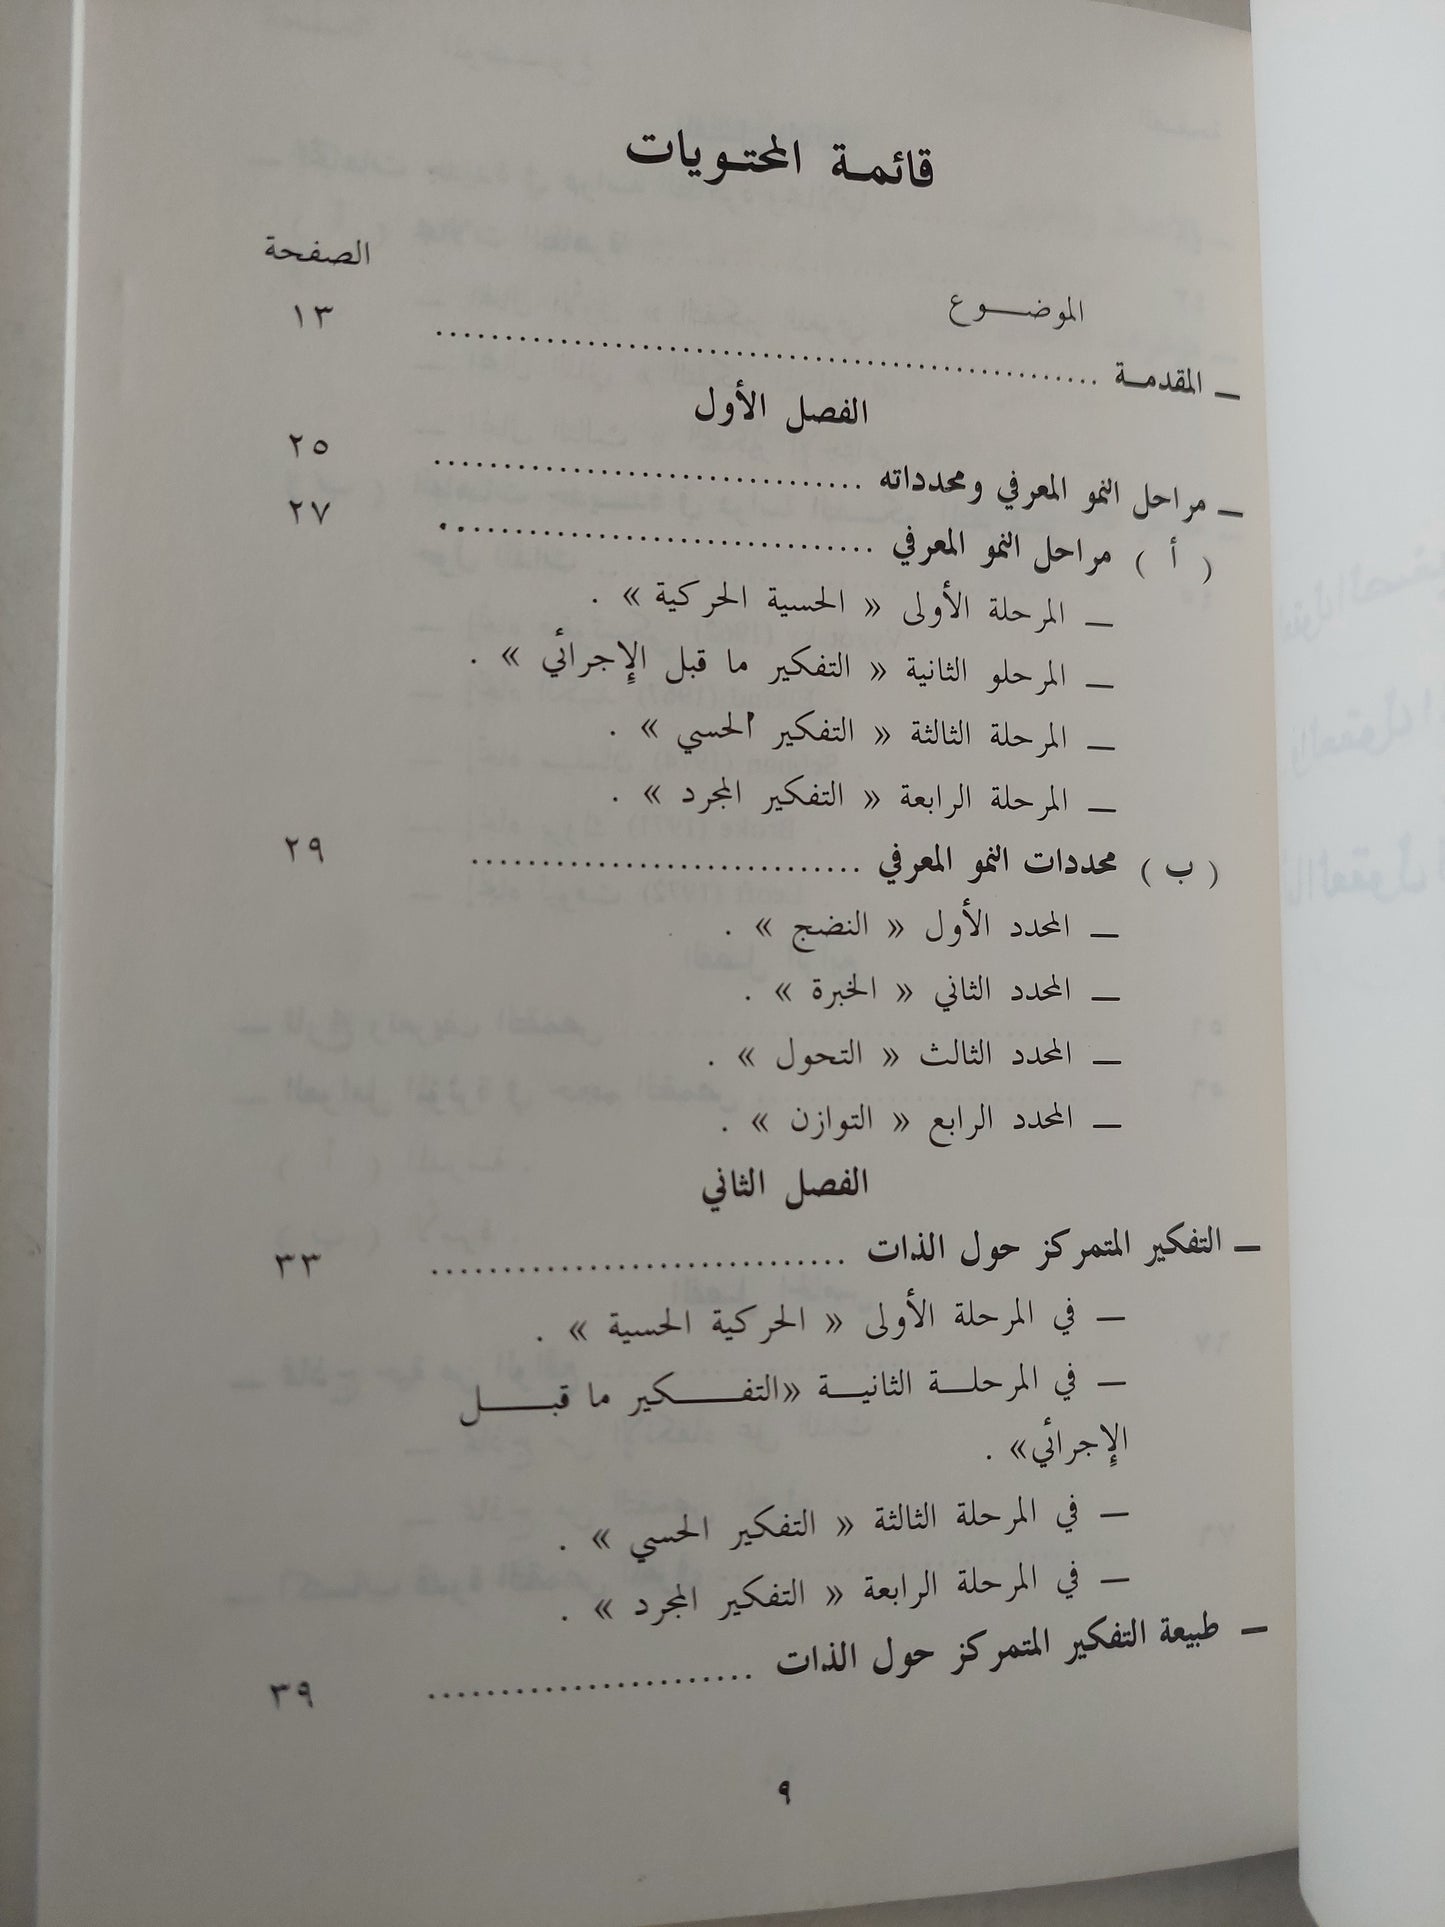 قائمة المحتويات
الموضوع الصفحة
ـ المقدمة .................................................. ١٣
الفصل الأول
ـ مراحل النمو المعرفي ومحدداته .............................. ٢٥
( أ ) مراحل النمو المعرفي .............................. ٢٧
ـ المرحلة الأولى « الحسية الحركية » .
ـ المرحلو الثانية « التفكير ما قبل الإجرائي » .
ـ المرحلة الثالثة « التفكير الحسي » .
ـ المرحلة الرابعة « التفكير المجرد » .
( ب ) محددات النمو المعرفي .............................. ٢٩
ـ المحدد الأول « النضج » .
ـ المحدد الثاني « الخبرة » .
ـ المحدد الثالث « التحول » .
ـ المحدد الرابع « التوازن » .
الفصل الثاني
ـ التفكير المتمركز حول الذات .............................. ٣٣
ـ في المرحلة الأولى « الحركية الحسية » .
ـ في المرحلة الثانية «التفكير ما قبل
الإجرائي» .
ـ في المرحلة الثالثة « التفكير الحسي » .
ـ في المرحلة الرابعة « التفكير المجرد » .
ـ طبيعة التفكير المتمركز حول الذات ....................... ٣٩
٩